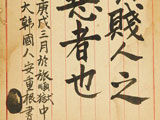 賤人之
惡者也
庚戌三月於旅順獄中
大韓國人安重根書